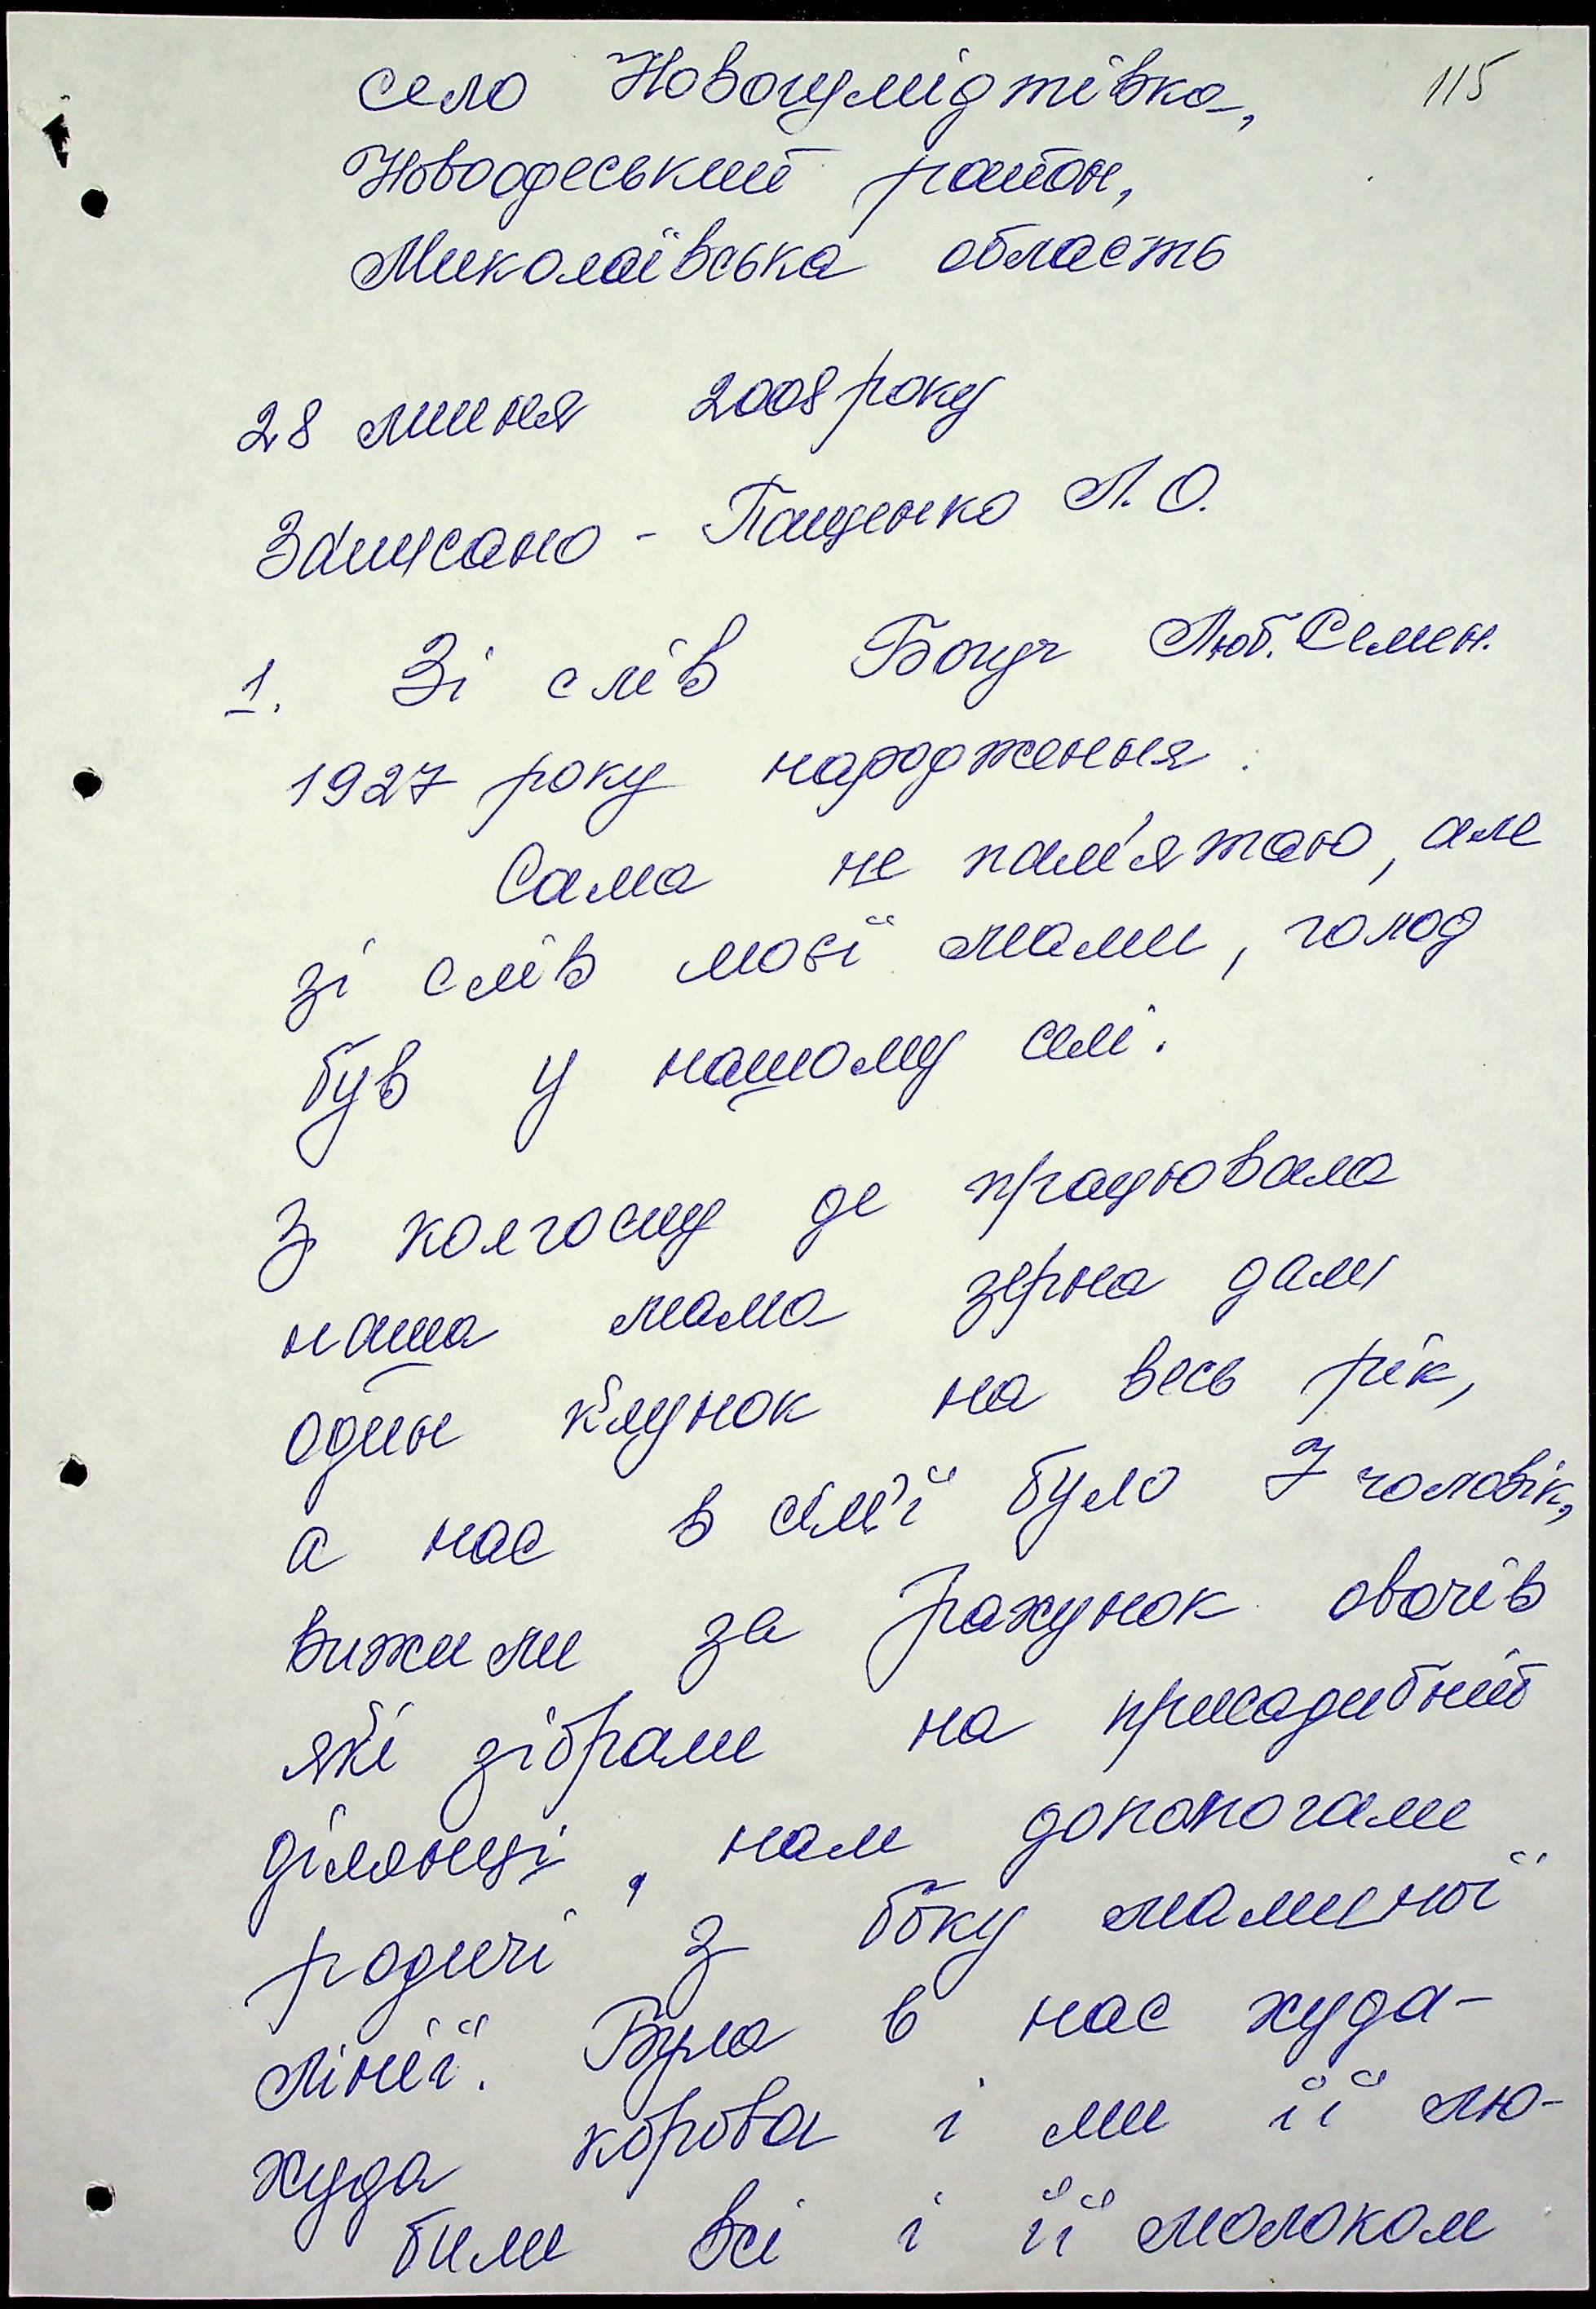 село Новошмідтівка,
115
Новоодеський район,
Миколаївська область
28 липня 2008 року
Записано - Пащенко Л. О.
1. Зі слів Люб. Семен.
1927 року народження.
Сама не пам'ятаю, але
зі слів моєї мами, голод
був у нашому селі.
З колгоспу де працювала
наша мама зерна дали
один клунок на весь рік,
а нас в сім'ї було 7 чоловік,
вижили за рахунок овочів
які зібрали на присадибній
ділянці, нам допомогали
родичі з боку маминої
лінії. Була в нас худа-
худа корова і ми її лю-
били всі і її молоком